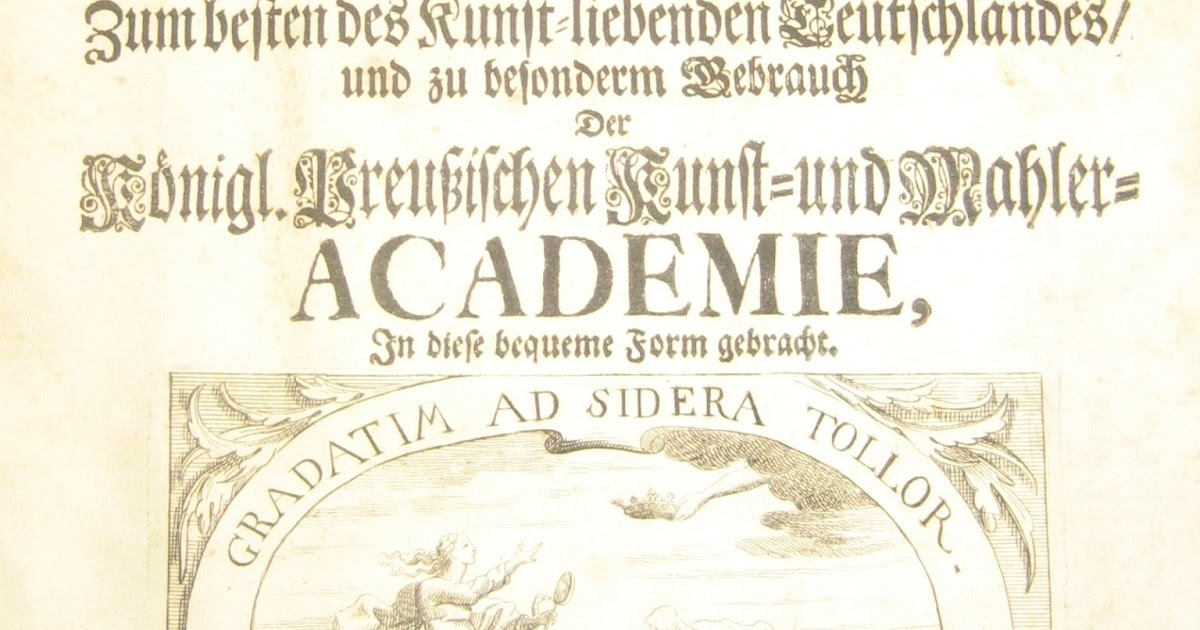 Zum besten des Kunst-liebenden Teutschlandes/
und zu besonderm Gebrauch
Der
Königl. Preußischen Kunst-und Mahler-
ACADEMIE,
In diese bequeme Form gebracht.
GRADATIM AD SIDERA TOLLOR.